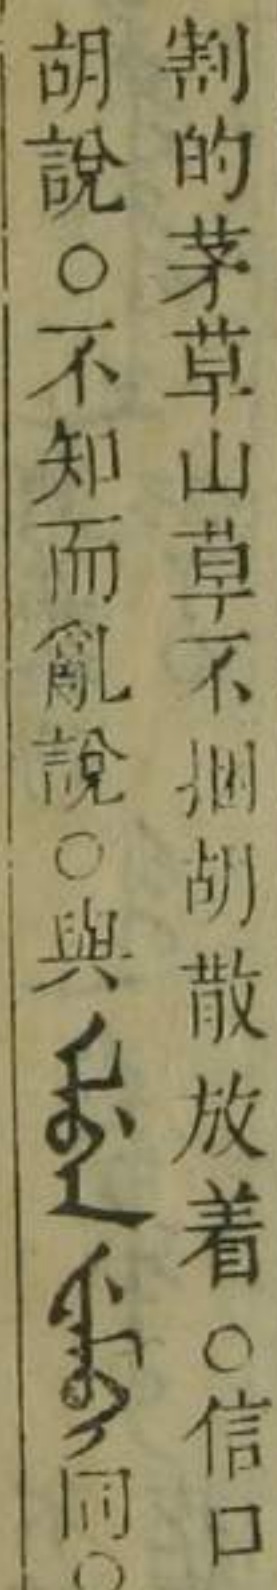 割的茅草山草不捆胡散放着○信口
胡說○不知而亂說○與 同○